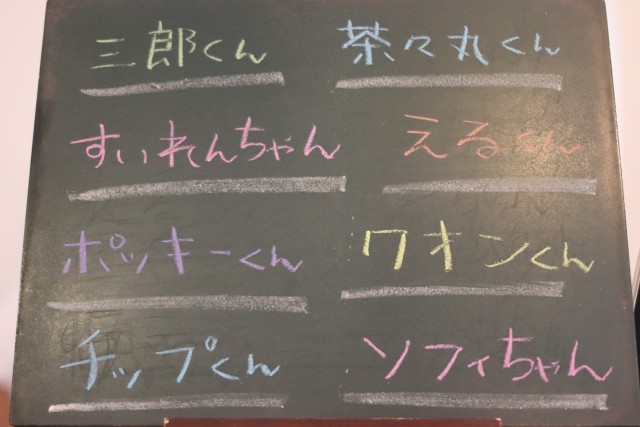 三郎くん 茶々丸くん
すいれんちゃん えるくん
ポッキーくん クオンくん
チップくん ソフィちゃん